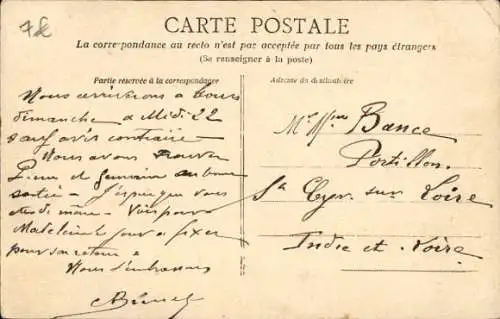 7€
CARTE POSTALE
La correspondance au recto n'est pas acceptée par tous les pays étrangers
(Se renseigner à la poste)
Partie réservée à la correspondance
Adresse du destinataire
Nous arriverons a Tours
dimanche a Midi 22
sauf avis contraire —
Nous avons trouvé
Pierre et Germain en bonne
santé — J'espère que vous
etes de même — Voir pour
Madeleine jour a fixer
pour son retour
Nous t'embrassons
Mr Mme Bance
Portillon
St Cyr sur Loire
Indre et Loire